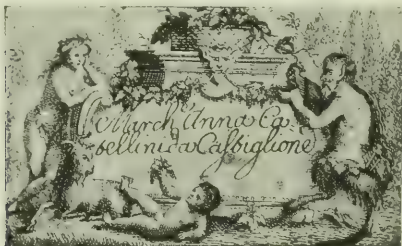 March.ˢᵃ Anna Ca-
bellini da Casbiglione